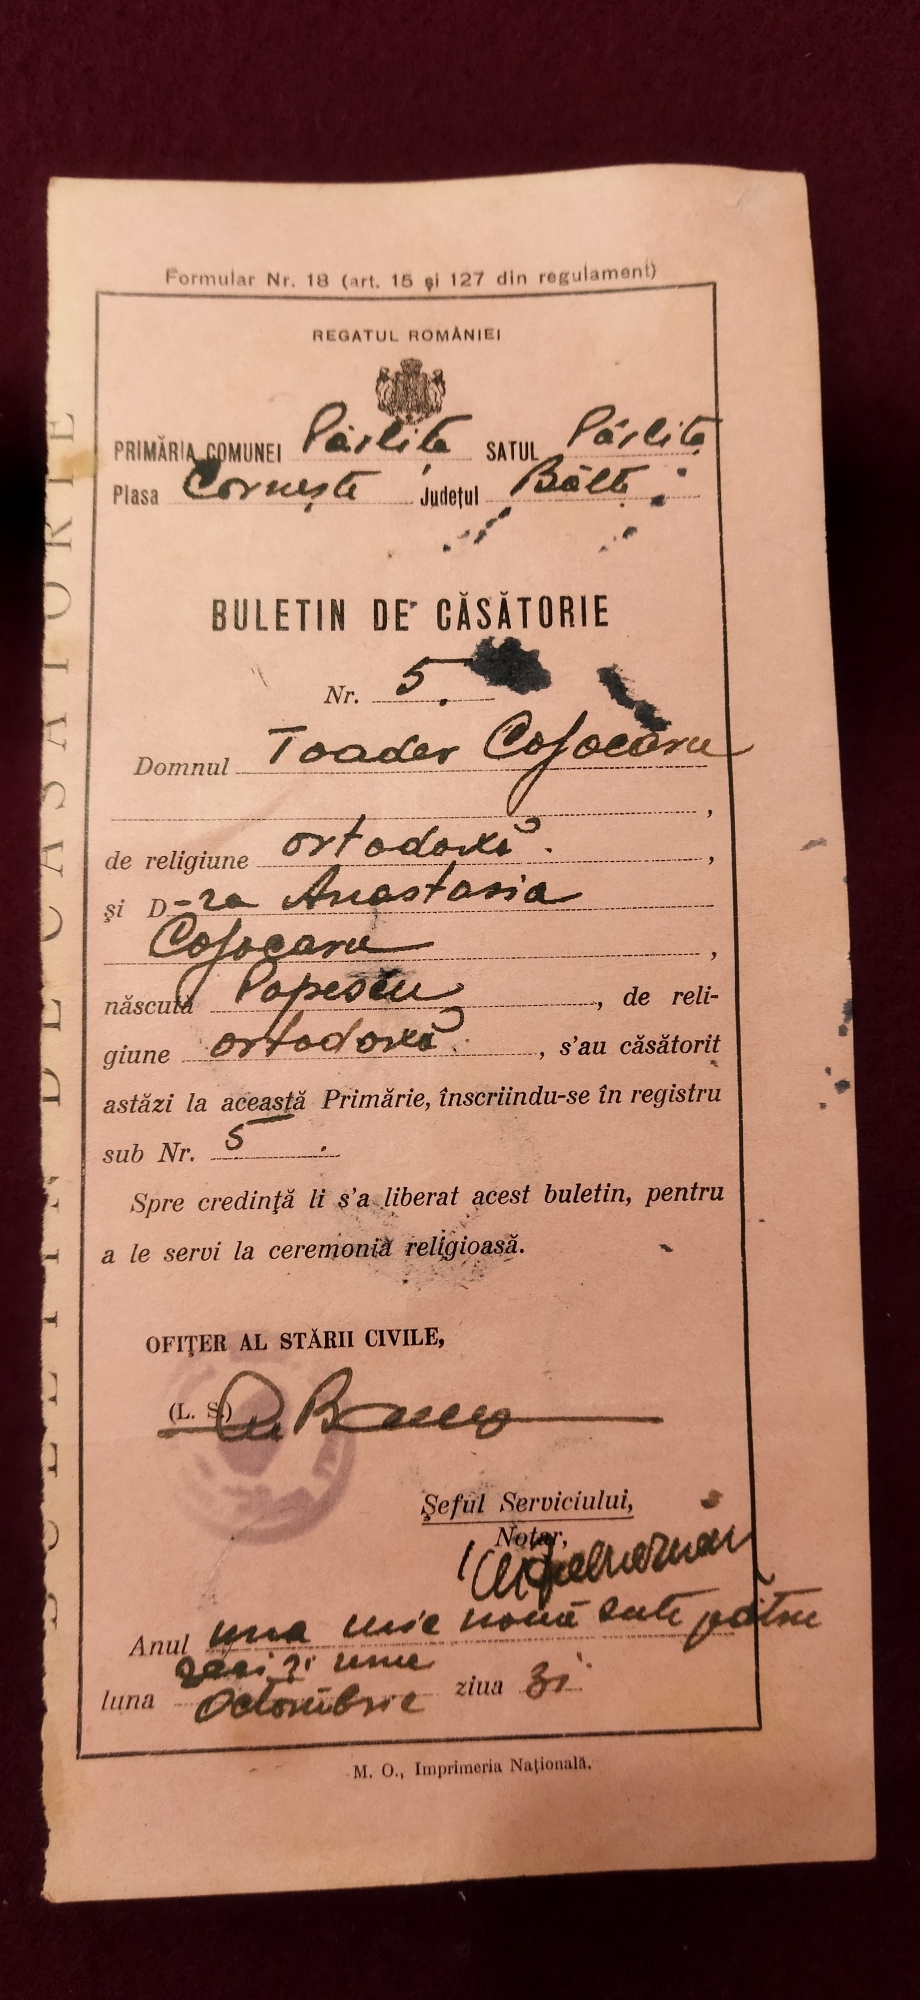 Formular Nr. 18 (art. 15 și 127 din regulament)
REGATUL ROMÂNIEI
PRIMĂRIA COMUNEI Pârlița SATUL Pârlița
Plasa Cornești Județul Bălți
BULETIN DE CĂSĂTORIE
Nr. 5.
Domnul Toader Cojocaru
,
de religiune ortodoxă. ,
și D-ra Anastasia
Cojocaru ,
născută Popescu , de reli-
giune ortodoxă. , s'au căsătorit
astăzi la această Primărie, înscriindu-se în registru
sub Nr. 5.
Spre credință li s'a liberat acest buletin, pentru
a le servi la ceremonia religioasă.
OFIȚER AL STĂRII CIVILE,
(L. S.)
Șeful Serviciului,
Notar,
Anul una mie nouă sute pătru
zeci și unu
luna Octombrie ziua 31
M. O., Imprimeria Națională.
BULETIN DE CĂSĂTORIE